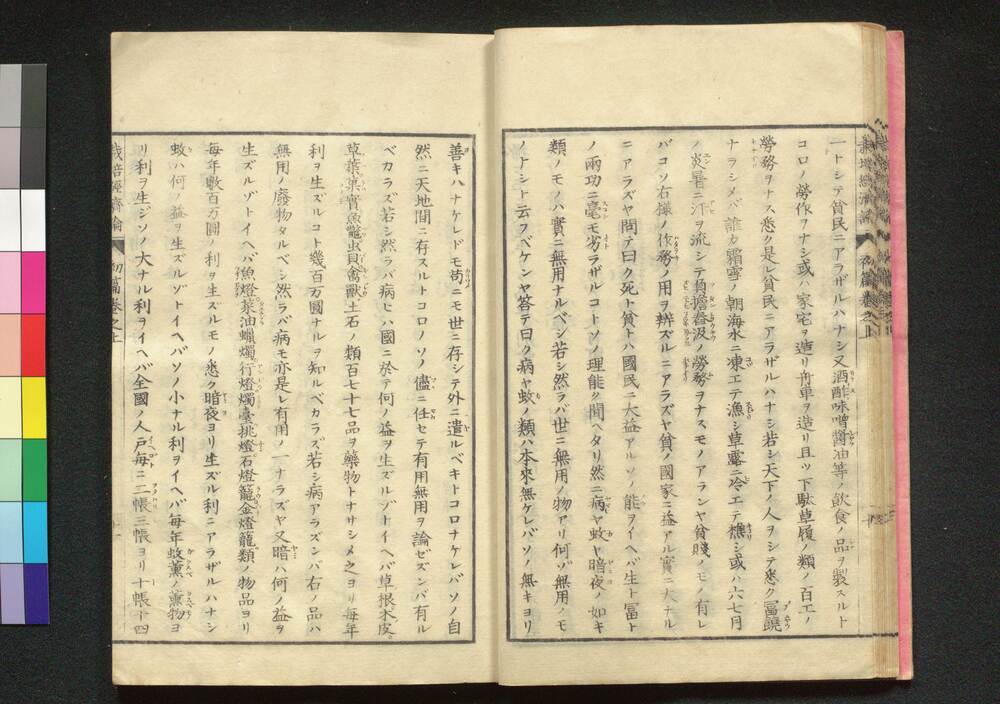 一トシテ貧民ニアラザルハナシ又酒酢味噌醬油等ノ飲食ノ品ヲ製スルト
コロノ勞作ヲナシ或ハ家宅ヲ造リ舟車ヲ造リ且ツ下駄草履ノ類ノ百工ノ
勞務ヲナス悉ク是レ貧民ニアラザルハナシ若シ天下ノ人ヲシテ悉ク冨饒
ナラシメバ誰カ霜雪ノ朝海水ニ凍エテ漁シ草露ニ冷エテ樵シ或ハ六七月
ノ炎暑ニ汗ヲ流シテ負擔舂汲ノ勞務ヲナスモノアランヤ貧賤ノモノ有レ
バコソ右様ノ作務ノ用ヲ辨ズルニアラズヤ貧ノ國家ニ益アル實ニ大ナル
ニアラズヤ問テ曰ク死ト貧トハ國民ニ大益アルソノ能ヲイヘバ生ト冨ト
ノ兩功ニ毫モ劣ラザルコトソノ理能ク聞ヘタリ然ニ病ヤ蚊ヤ暗夜ノ如キ
類ノモノハ實ニ無用ナルベシ若シ然ラバ世ニ無用ノ物アリ何ゾ無用ノモ
ノナシト云フベケンヤ答テ曰ク病ヤ蚊ノ類ハ本來無ケレバソノ無キヨリ
善キハナケレドモ苟ニモ世ニ存シテ外ニ遣ルベキトコロナケレバソノ自
然ニ天地間ニ存スルトコロノソノ儘ニ任セテ有用無用ヲ論ゼズンバ有ル
ベカラズ若シ然ラバ病ヒハ國ニ於テ何ノ益ヲ生ズルゾトイヘバ草根木皮。
草葉菓實魚鼈虫貝禽獸土石ノ類百七十七品ヲ藥物トナサシメ之ヨリ毎年
利ヲ生ズルコト幾百万圓ナルヲ知ルベカラズ若シ病アラズンバ右ノ品ハ
無用ノ廢物タルベシ然ラバ病モ亦是レ有用ノ一ナラズヤ又暗ハ何ノ益ヲ
生ズルゾトイヘバ魚燈菜油蠟燭行燈燭臺挑燈石燈籠金燈籠類ノ物品ヨリ
毎年數百万圓ノ利ヲ生ズルモノ悉ク暗夜ヨリ生ズル利ニアラザルハナシ
蚊ハ何ノ益ヲ生ズルゾトイヘバソノ小ナル利ヲイヘバ毎年蚊薫ノ薫物ヨ
リ利ヲ生ジソノ大ナル利ヲイヘバ全國ノ人戸毎ニ二帳三帳ヨリ十帳十四
栽培經濟論 初篇卷之上